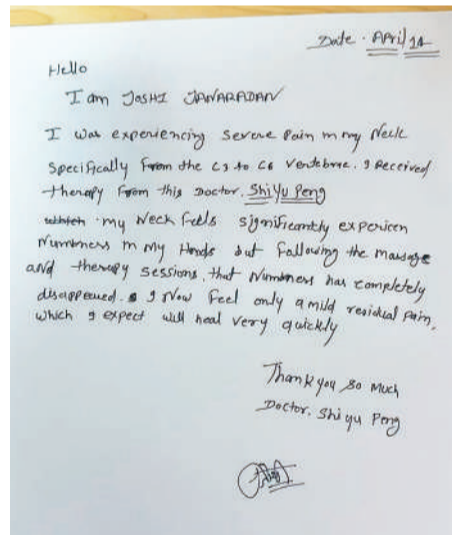 Date. April 14
Hello
I am JOSHI JANARADAN
I was experiencing severe pain in my Neck
specifically from the C3 to C6 Vertebrae. I received
therapy from this Doctor. Shi Yu Peng
my Neck feels significantly experien
Numbness in my Hands but following the massage
and therapy sessions, that Numbness has completely
disappeared. I Now feel only a mild residual pain,
which I expect will heal very quickly
Thank you so much
Doctor. Shi yu Peng